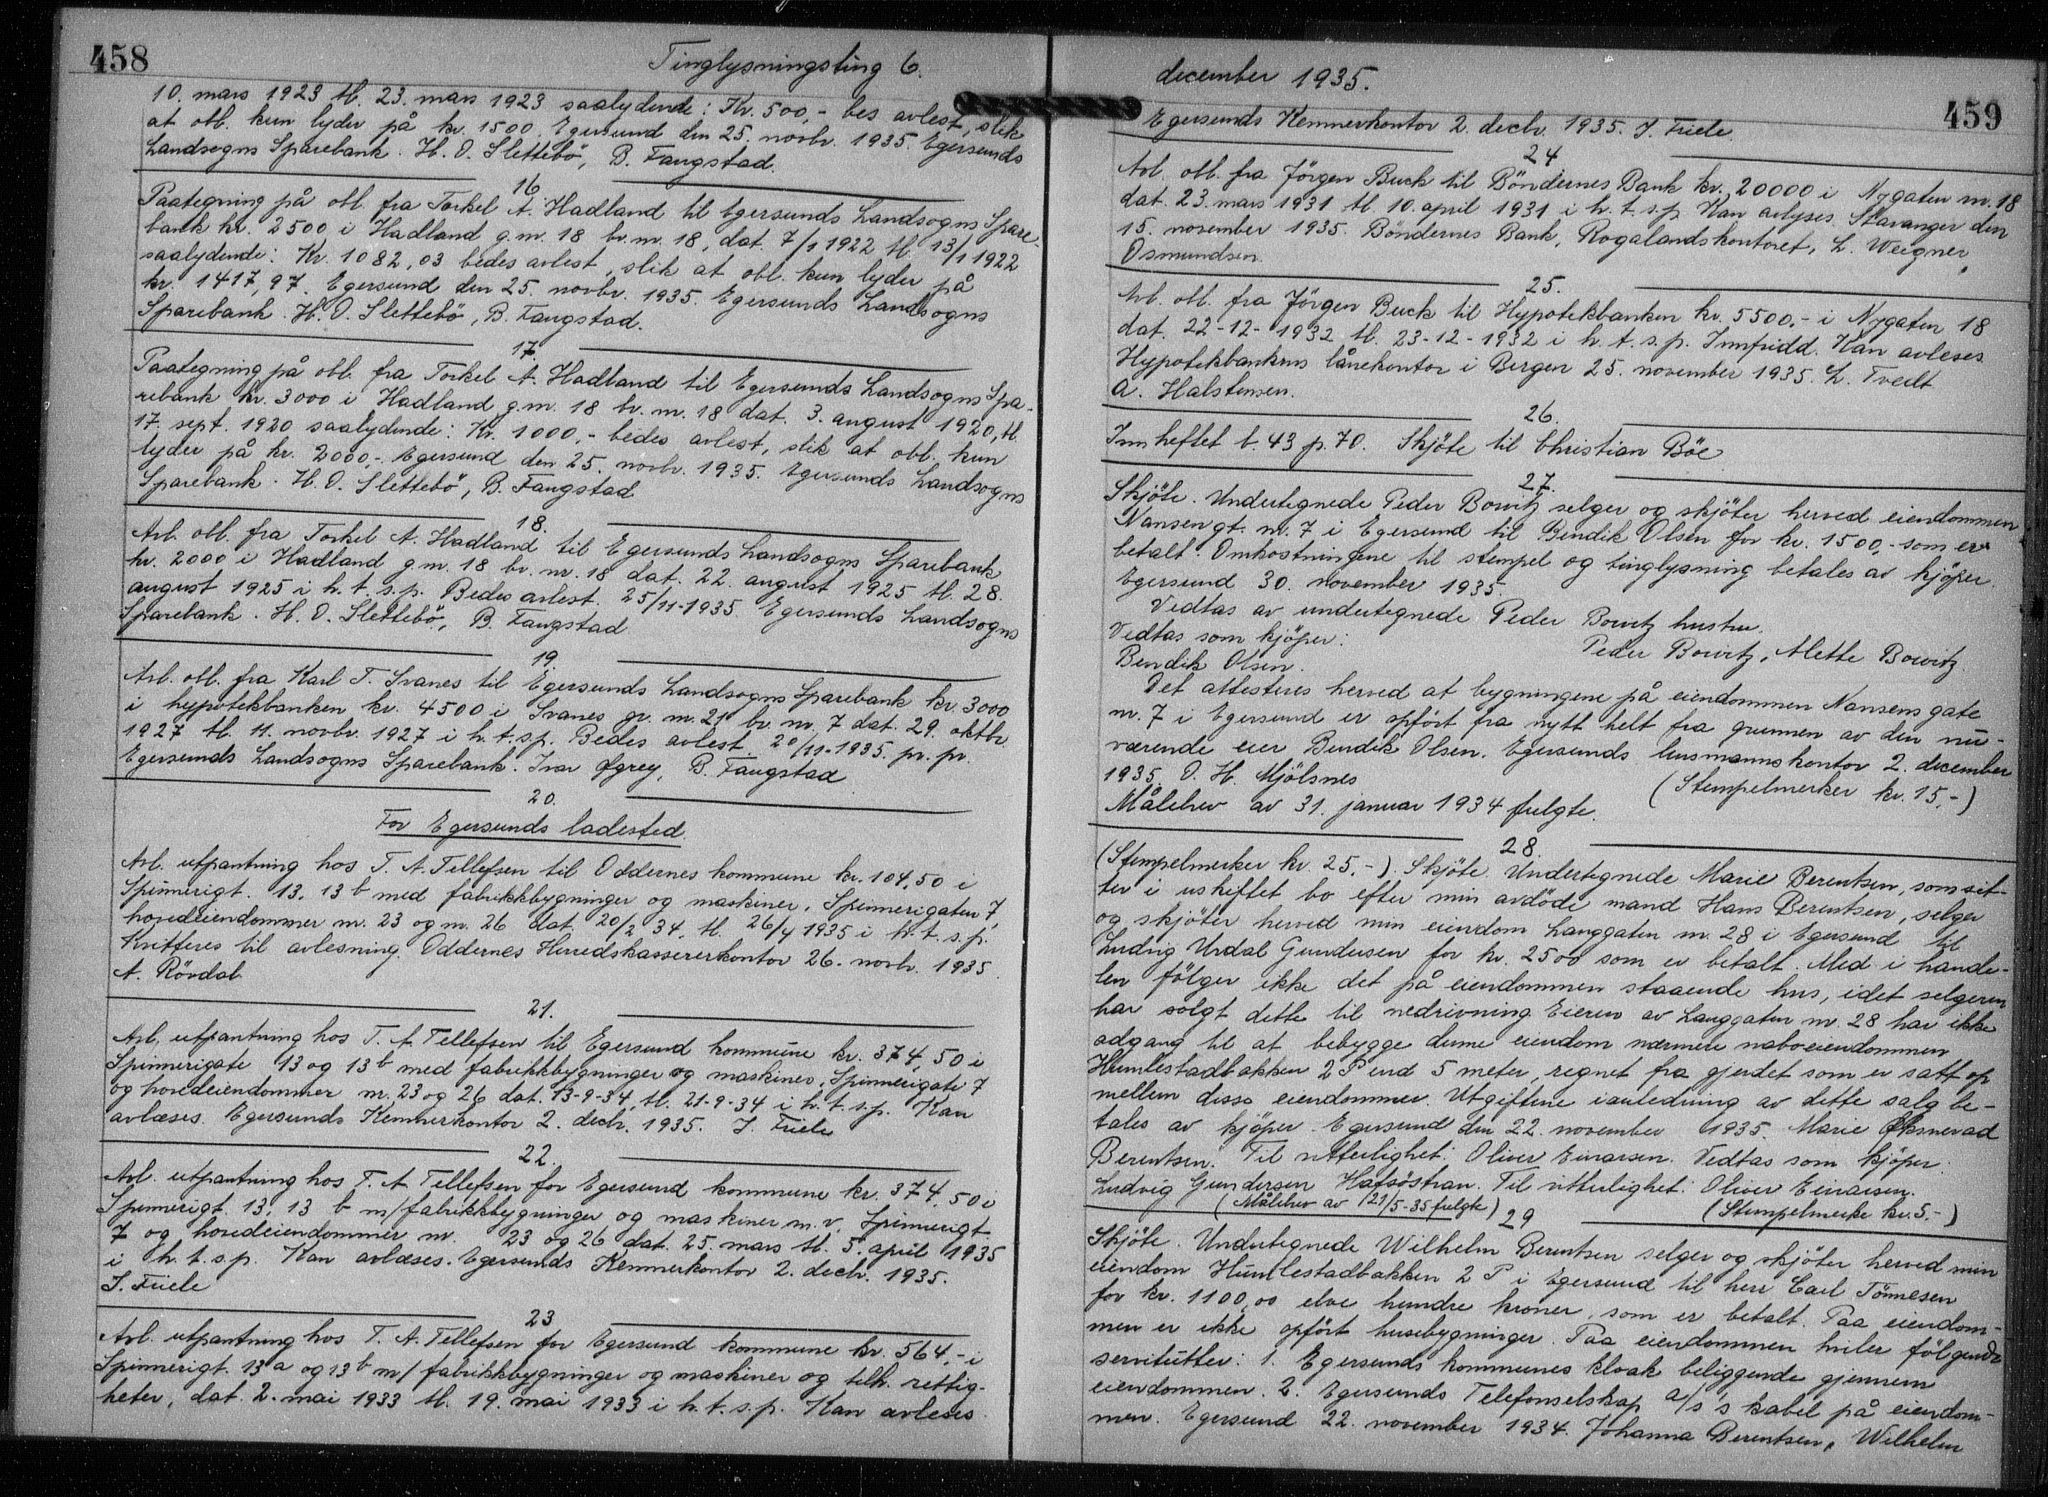 458
Tinglysningsting 6.
10. mars 1923 tl. 23. mars 1923 saalydende: Kr. 500,- bes avlest, slik
at obl. kun lyder på kr. 1500. Egersund den 25. novbr. 1935. Egersunds
Landsogns Sparebank. H. O. Slettebö, B. Faugstad.
16
Paategning på obl. fra Torkel A. Hadland til Egersunds Landsogns Spare-
bank kr. 2500 i Hadland g.nr. 18 br.nr. 18, dat. 7/1 1922 tl. 13/1 1922
saalydende: Kr. 1082,03 bedes avlest, slik at obl. kun lyder på
kr. 1417,97. Egersund den 25. novbr. 1935. Egersunds Landsogns
Sparebank. H. O. Slettebö, B. Faugstad.
17.
Paategning på obl. fra Torkel A. Hadland til Egersunds Landsogns Spa-
rebank kr. 3000 i Hadland g.nr. 18 br.nr. 18 dat. 3. august 1920, tl.
17. sept. 1920 saalydende: Kr. 1000,- bedes avlest, slik at obl. kun
lyder på kr. 2000,-. Egersund den 25. novbr. 1935. Egersunds Landsogns
Sparebank. H. O. Slettebö, B. Faugstad
18.
Avl. obl. fra Torkel A. Hadland til Egersunds Landsogns Sparebank
kr. 2000 i Hadland g.nr. 18 br. nr. 18 dat. 22. august 1925 tl. 28.
august 1925 i h.t.s.p. Bedes avlest. 25/11-1935 Egersunds Landsogns
Sparebank. H. O. Slettebö, B. Faugstad
19.
Avl. obl. fra Karl T. Svanes til Egersunds Landsogns Sparebank kr. 3000
i hypotekbanken kr. 4500 i Svanes gr. nr. 21 br. nr. 7 dat. 29. oktbr.
1927 tl. 11. novbr. 1927 i h.t.s.p. Bedes avlest. 20/11-1935. pr. pr.
Egersunds Landsogns Sparebank. Ivar Øgrey, B. Faugstad
20.
For Egersunds ladested
Avl. utpantning hos T. A. Tellefsen til Oddernes kommune kr. 104,50 i
Spinnerigt. 13, 13 b med fabrikkbygninger og maskiner, Spinnerigaten 7,
hovedeiendommer nr. 23 og nr. 26 dat. 20/2 34, tl. 26/4 1935 i h.t.s.p.
Kvitteres til avlesning. Oddernes Herredskassererkontor 26. novb. 1935.
A. Rövdal
21.
Avl. utpantning hos T. A Tellefsen til Egersund kommune kr. 374,50 i
Spinnerigate 13 og 13 b med fabrikkbygninger og maskiner, Spinnerigate 7
og hovedeiendommer nr. 23 og 26 dat. 13-9-34, tl. 21-9-34 i h.t.s.p. Kan
avlæses. Egersunds Kemnerkontor 2. decbr. 1935. J. Friele
22.
Avl. utpantning hos T. A Tellefsen for Egersund kommune kr. 374,50 i
Spinnerigt. 13, 13 b m/ fabrikkbygninger og maskiner m. v. Spinnerigt.
7 og hovedeiendommer nr. 23 og 26 dat. 25. mars tl. 5. april 1935
i h.t.s.p. Kan avlæses. Egersunds Kemnerkontor 2. decbr. 1935.
J. Friele
23
Avl. utpantning hos T. A. Tellefsen for Egersund kommune kr. 564,- i
Spinnerigt. 13 a og 13 b m/ fabrikkbygninger og maskiner og tilh. rettig-
heter, dat. 2. mai 1933 tl. 19. mai 1933 i h.t.s.p. Kan avleses
december 1935.
459
Egersunds Kemnerkontor 2. decbr. 1935. J. Friele
24
Avl. obl. fra Jörgen Buck til Böndernes Bank kr. 20000 i Nygaten nr. 18
dat. 23. mars 1931 tl. 10. april 1931 i h.t.s.p. Kan avlyses. Stavanger den
15. november 1935. Böndernes Bank, Rogalandskontoret, L. Weigner,
Osmundsen.
25.
Avl. obl. fra Jörgen Buck til Hypotekbanken kr. 5500,- i Nygaten 18
dat. 22-12-1932 tl. 23-12-1932 i h.t.s.p. Innfridd. Kan avleses.
Hypotekbankens lånekontor i Bergen 25. november 1935. L. Tvedt
A. Halstensen.
26.
Innheftet b. 43 p. 70. Skjöte til Christian Böe
27.
Skjöte. Undertegnede Peder Bowitz selger og skjöter herved eiendommen
Nansengt. nr. 7 i Egersund til Bendik Olsen for kr. 1500,- som er
betalt. Omkostningene til stempel og tinglysning betales av kjöper.
Egersund 30. november 1935.
Vedtas av undertegnede Peder Bowitz hustru.
Vedtas som kjöper: Peder Bowitz, Mette Bowitz
Bendik Olsen.
Det attesteres herved at bygningene på eiendommen Nansensgate
nr. 7 i Egersund er opfört fra nytt helt fra grunnen av den nu-
værende eier Bendik Olsen. Egersunds lensmannskontor 2. december
1935 O. H. Mjölsnes (Stempelmerker kr. 15,-)
Målebrev av 31. januar 1934 fulgte.
28
(Stempelmerker kr. 25,-) Skjöte. Undertegnede Marie Berentsen, som sit-
ter i uskiftet bo efter min avdöde mand Hans Berentsen, selger
og skjöter herved min eiendom Langgaten nr. 28 i Egersund til
Ludvig Urdal Gundersen for kr. 2500 som er betalt. Med i hande-
len fölger ikke det på eiendommen staaende hus, idet selgeren
har solgt dette til nedrivning. Eieren av Langgaten nr. 28 har ikke
adgang til at bebygge denne eiendom nærmere naboeiendommen
Humlestadbakken 2 P end 5 meter, regnet fra gjerdet som er satt op
mellem disse eiendommer. Utgiftene ianledning av dette salg be-
tales av kjöper. Egersund den 22. november 1935. Marie Øksnevad
Berentsen. Til vitterlighet: Oliver Einarsen. Vedtas som kjöper:
Ludvig Gundersen Hafsöstran. Til vitterlighet: Oliver Einarsen.
(Målebrev av 21/5-35 fulgte) 29 (Stempelmerke kr. 5.-)
Skjöte. Undertegnede Wilhelm Berentsen selger og skjöter herved min
eiendom Humlestadbakken 2 P i Egersund til herr Carl Tönnesen
for kr. 1100,00 elve hundre kroner, som er betalt. Paa eiendom-
men er ikke opfört husebygninger. Paa eiendommen hviler fölgende
servitutter: 1. Egersunds kommunes kloak beliggende gjennem
eiendommen. 2. Egersunds Telefonselskap a/s's kabel på eiendom-
men. Egersund 22. november 1934. Johanna Berentsen, Wilhelm